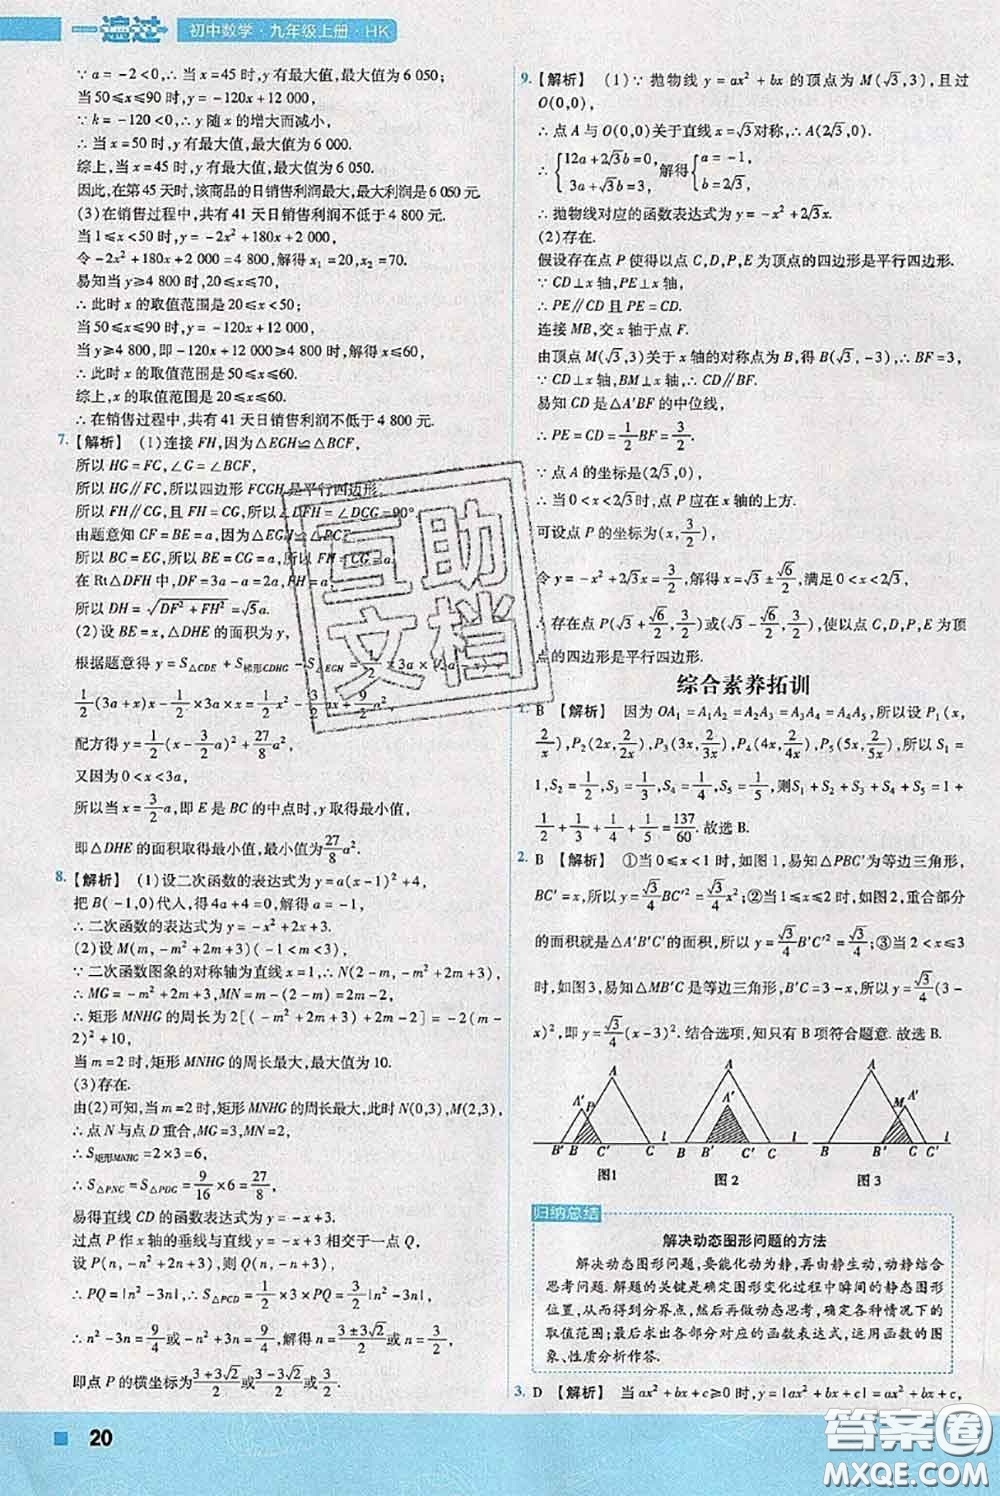 一遍过 初中数学·九年级上册·HK
∵a=-2<0,∴当x=45时,y有最大值,最大值为6 050;
当50≤x≤90时,y=-120x+12 000,
∵k=-120<0,∴y随x的增大而减小,
∴当x=50时,y有最大值,最大值为6 000.
综上,当x=45时,y有最大值,最大值为6 050.
因此,在第45天时,该商品的日销售利润最大,最大利润是6 050元.
(3)在销售过程中,共有41天日销售利润不低于4 800元.
当1≤x<50时,y=-2x²+180x+2 000,
令-2x²+180x+2 000=4 800,解得x₁=20,x₂=70.
易知当y≥4 800时,20≤x≤70,
∴此时x的取值范围是20≤x<50;
当50≤x≤90时,y=-120x+12 000,
当y≥4 800,即-120x+12 000≥4 800时,解得x≤60,
∴此时x的取值范围是50≤x≤60.
综上,x的取值范围是20≤x≤60.
∴在销售过程中,共有41天日销售利润不低于4 800元.
7.【解析】 (1)连接FH,因为△EGH≌△BCF,
所以HG=FC,∠G=∠BCF,
所以HG∥FC,所以四边形FCGH是平行四边形,
所以FH∥CG,且FH=CG,所以∠DFH=∠DCG=90°.
由题意知CF=BE=a,因为△EGH≌△BCF,
所以BC=EG,所以BE=CG,所以FH=CG=a.
在Rt△DFH中,DF=3a-a=2a,FH=a,
所以DH=√(DF²+FH²)=√5a.
(2)设BE=x,△DHE的面积为y,
根据题意得y=S△CDE+S梯形CDHG-S△EGH=1/2×3a×
1/2(3a+x)x-1/2×3a×x=1/2x²-3/2ax+9/2a²,
配方得y=1/2(x-3/2a)²+27/8a²,
又因为0<x<3a,
所以当x=3/2a,即E是BC的中点时,y取得最小值,
即△DHE的面积取得最小值,最小值为27/8a².
8.【解析】 (1)设二次函数的表达式为y=a(x-1)²+4,
把B(-1,0)代入,得4a+4=0,解得a=-1,
∴二次函数的表达式为y=-x²+2x+3.
(2)设M(m,-m²+2m+3)(-1<m<3),
∵二次函数图象的对称轴为直线x=1,∴N(2-m,-m²+2m+3),
∴MG=-m²+2m+3,MN=m-(2-m)=2m-2,
∴矩形MNHG的周长为2[(-m²+2m+3)+2m-2]=-2(m-
2)²+10,
当m=2时,矩形MNHG的周长最大,最大值为10.
(3)存在.
由(2)可知,当m=2时,矩形MNHG的周长最大,此时N(0,3),M(2,3),
∴点N与点D重合,MG=3,MN=2,
∴S矩形MNHG=2×3=6,
∴S△PNC=S△PDC=9/16×6=27/8,
易得直线CD的函数表达式为y=-x+3.
过点P作x轴的垂线与直线y=-x+3相交于一点Q,
设P(n,-n²+2n+3),则Q(n,-n+3),
∴PQ=|n²-3n|,∴S△PCD=1/2×3×PQ=3/2|n²-3n|=27/8,
∴n²-3n=9/4或-n²+3n=9/4,解得n=(3±3√2)/2或n=3/2,
即点P的横坐标为(3+3√2)/2或(3-3√2)/2或3/2.
9.【解析】 (1)∵抛物线y=ax²+bx的顶点为M(√3,3),且过
O(0,0),
∴点A与O(0,0)关于直线x=√3对称,∴A(2√3,0),
∴{12a+2√3b=0, 3a+√3b=3, 解得{a=-1, b=2√3,
∴抛物线对应的函数表达式为y=-x²+2√3x.
(2)存在.
假设存在点P使得以点C,D,P,E为顶点的四边形是平行四边形.
∵CD⊥x轴,PE⊥x轴,
∴PE∥CD且PE=CD.
连接MB,交x轴于点F.
由顶点M(√3,3)关于x轴的对称点为B,得B(√3,-3),∴BF=3,
∵CD⊥x轴,BM⊥x轴,∴CD∥BF.
易知CD是△A'BF的中位线,
∴PE=CD=1/2BF=3/2.
∵点A的坐标是(2√3,0),
∴当0<x<2√3时,点P应在x轴的上方.
可设点P的坐标为(x,3/2),
令y=-x²+2√3x=3/2,解得x=√3±√6/2,满足0<x<2√3,
∴存在点P(√3+√6/2,3/2)或(√3-√6/2,3/2),使得以点C,D,P,E为顶
点的四边形是平行四边形.
综合素养拓训
1. B 【解析】 因为OA₁=A₁A₂=A₂A₃=A₃A₄=A₄A₅,所以设P₁(x,
2/x),P₂(2x,2/2x),P₃(3x,2/3x),P₄(4x,2/4x),P₅(5x,2/5x),所以S₁=
1,S₂=1/2,S₃=1/3,S₄=1/4,S₅=1/5,则S₁+S₂+S₃+S₄+S₅=1+
1/2+1/3+1/4+1/5=137/60.故选B.
2. B 【解析】 ①当0≤x<1时,如图1,易知△PBC'为等边三角形,
BC'=x,所以y=√3/4BC'²=√3/4x²;②当1≤x≤2时,如图2,重合部分
的面积就是△A'B'C'的面积,所以y=√3/4B'C'²=√3/4;③当2<x≤3
时,如图3,易知△MB'C是等边三角形,B'C=3-x,所以y=√3/4(3-
x)²,即y=√3/4(x-3)².结合选项,知只有B项符合题意.故选B.
A A' P B' B C' C l
图1
A A' B B' C' C l
图2
A M A' B B' C C' l
图3
归纳总结
解决动态图形问题的方法
解决动态图形问题,要能化动为静,再由静生动,动静结合
思考问题.解题的关键是确定图形变化过程中瞬间的静态图形
位置,从而得到分界点,然后再做动态思考,确定各种情况下的
取值范围;最后求出各部分对应的函数表达式,运用函数的图
象、性质分析作答.
3. D 【解析】 当ax²+bx+c≥0时,y=|ax²+bx+c|=ax²+bx+c,
20
互助
文档
答案圈
MXQE.COM